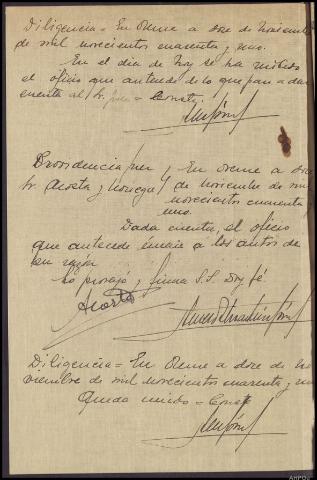 Diligencia = En Orense a doce de Noviembre
de mil novecientos cuarenta y uno.
En el dia de hoy se ha recibido
el oficio que antecede de lo que paso a dar
cuenta al Sr. Juez = Consta.
Providencia Juez
Sr. Acosta y Noregu
En Orense a doce
de noviembre de mil
novecientos cuarenta
uno.
Dada cuenta, el oficio
que antecede unase a los autos de
su razón
Lo proveyó y firma S.S. Doy fé
Acosta
Diligencia = En Orense a doce de No
viembre de mil novecientos cuarenta y uno
Queda unido = Consta